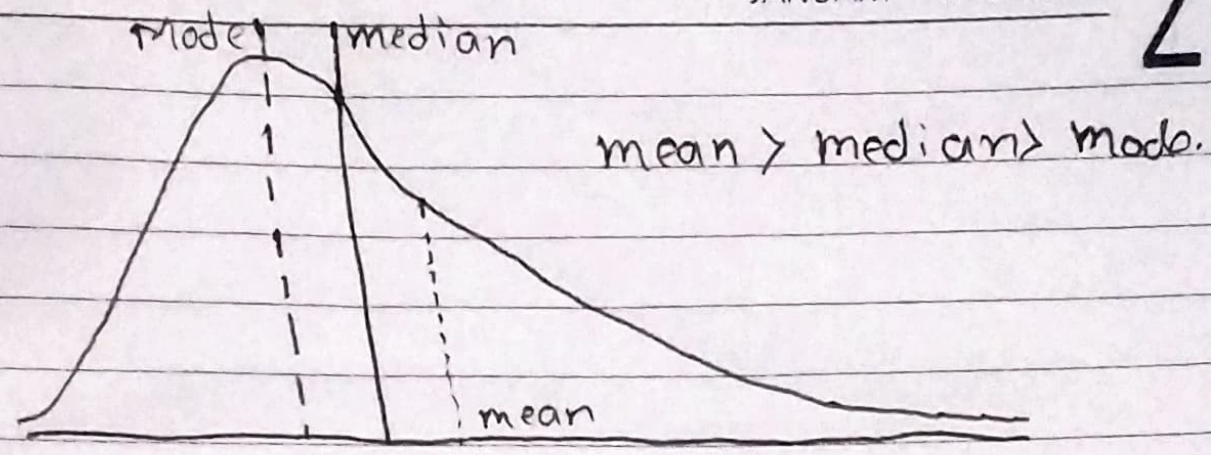 Mode median
mean > median > mode.
mean